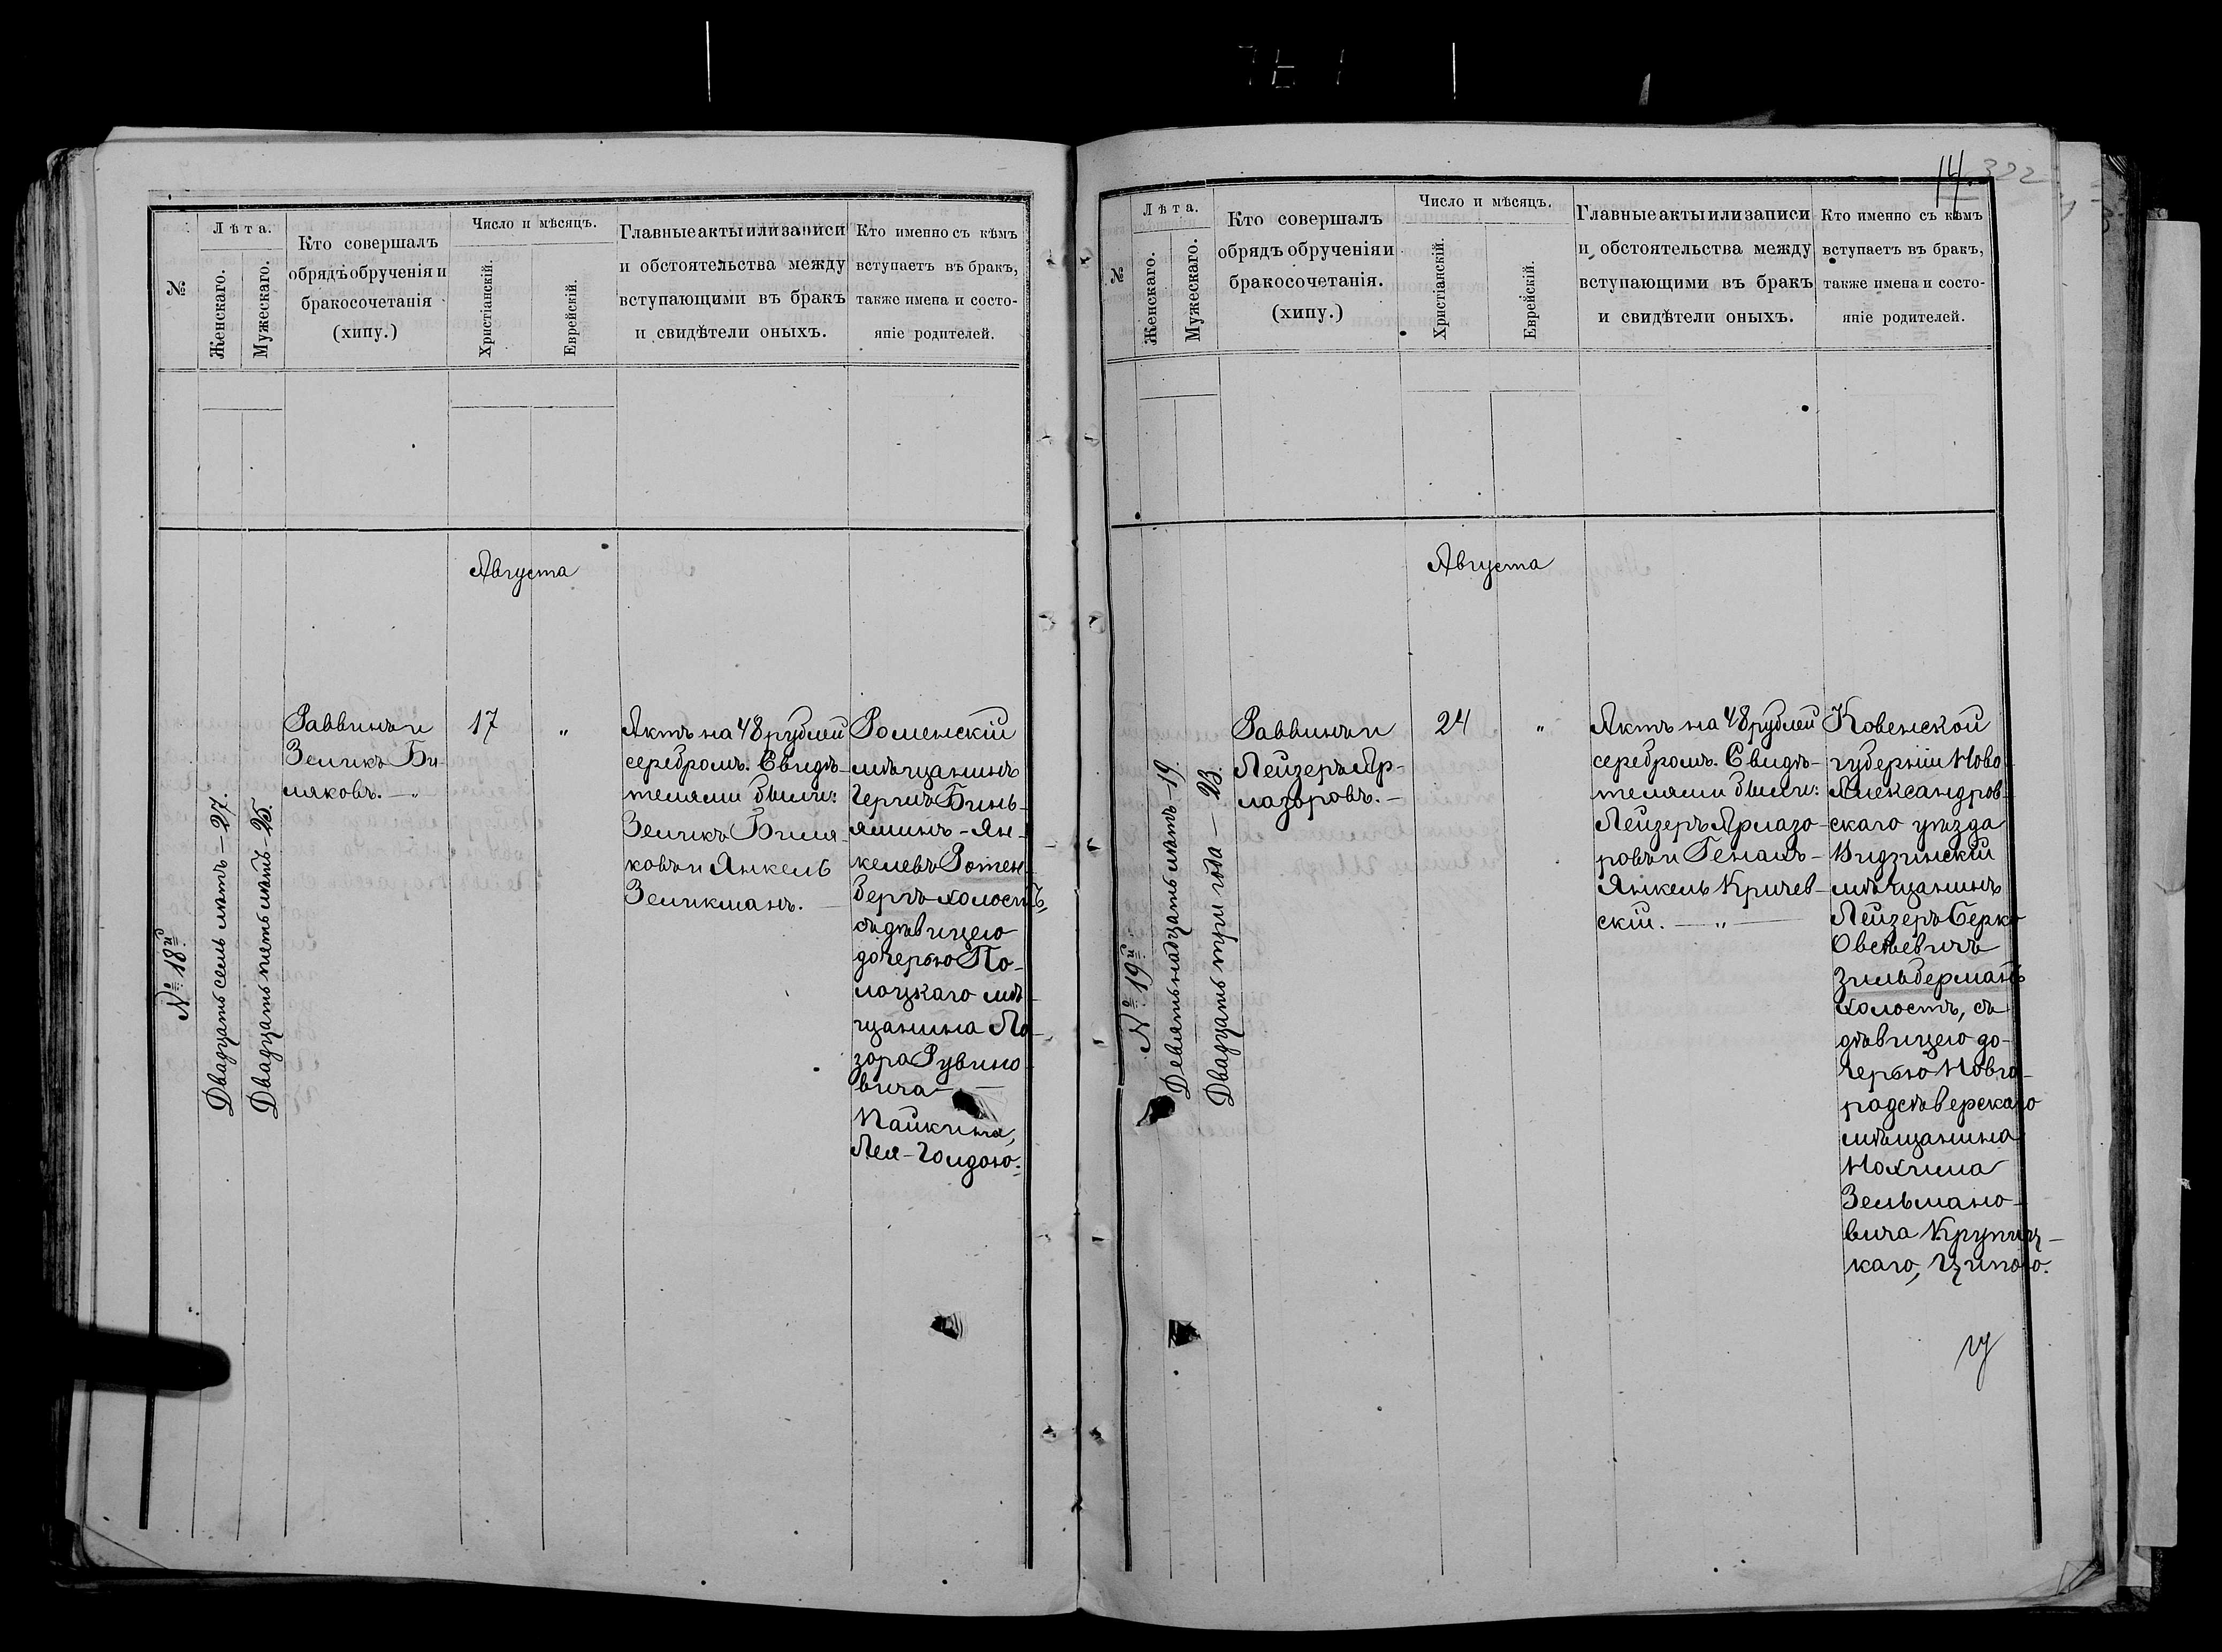 №
Лѣта.
Женскаго.
Мужескаго.
Кто совершалъ
обрядъ обрученія и
бракосочетанія
(хипу.)
Число и мѣсяцъ.
Христіанскій.
Еврейскій.
Главные акты или записи
и обстоятельства между
вступающими въ бракъ
и свидѣтели оныхъ.
Кто именно съ кѣмъ
вступаетъ въ бракъ,
также имена и состо-
яніе родителей.
Августа
№ 18й
Двадцать семь лѣтъ — 27.
Двадцать пять лѣтъ — 25.
Раввинъ и
Зеликъ Би-
ляковъ. — „
17
„
Актъ на 48 рублей
серебромъ. Свидѣ-
телями были:
Зеликъ Биля-
ковъ и Янкель
Зеликманъ. —
Роменскій
мѣщанинъ
Гершъ Бинь-
яминъ - Ян-
келевъ Ротен-
бергъ холостъ,
съ дѣвицею
дочерью По-
лоцкаго мѣ-
щанина Ла-
зора Рувино-
вича —
Пайкина,
Лея - Голдою.
14. 322
№
Лѣта.
Женскаго.
Мужескаго.
Кто совершалъ
обрядъ обрученія и
бракосочетанія.
(хипу.)
Число и мѣсяцъ.
Христіанскій.
Еврейскій.
Главные акты или записи
и обстоятельства между
вступающими въ бракъ
и свидѣтели оныхъ.
Кто именно съ кѣмъ
вступаетъ въ бракъ,
также имена и состо-
яніе родителей.
Августа
№ 19й
Девятьнадцать лѣтъ — 19.
Двадцать три года — 23.
Раввинъ и
Лейзеръ Яр-
лазоровъ. —
24
„
Актъ на 48 рублей
серебромъ. Свидѣ-
телями были:
Лейзеръ Ярлазо-
ровъ и Генахъ-
Янкель Кричев-
скій. — „ —
Ковенской
губерніи Ново-
Александров-
скаго уѣзда
Видзинскій
мѣщанинъ
Лейзеръ Берко
Овсѣевичъ
Зильберманъ
холостъ, съ
дѣвицею до-
черью Новго-
родсѣверскаго
мѣщанина
Нохима
Зельмано-
вича Крупиц-
каго, Ципою.